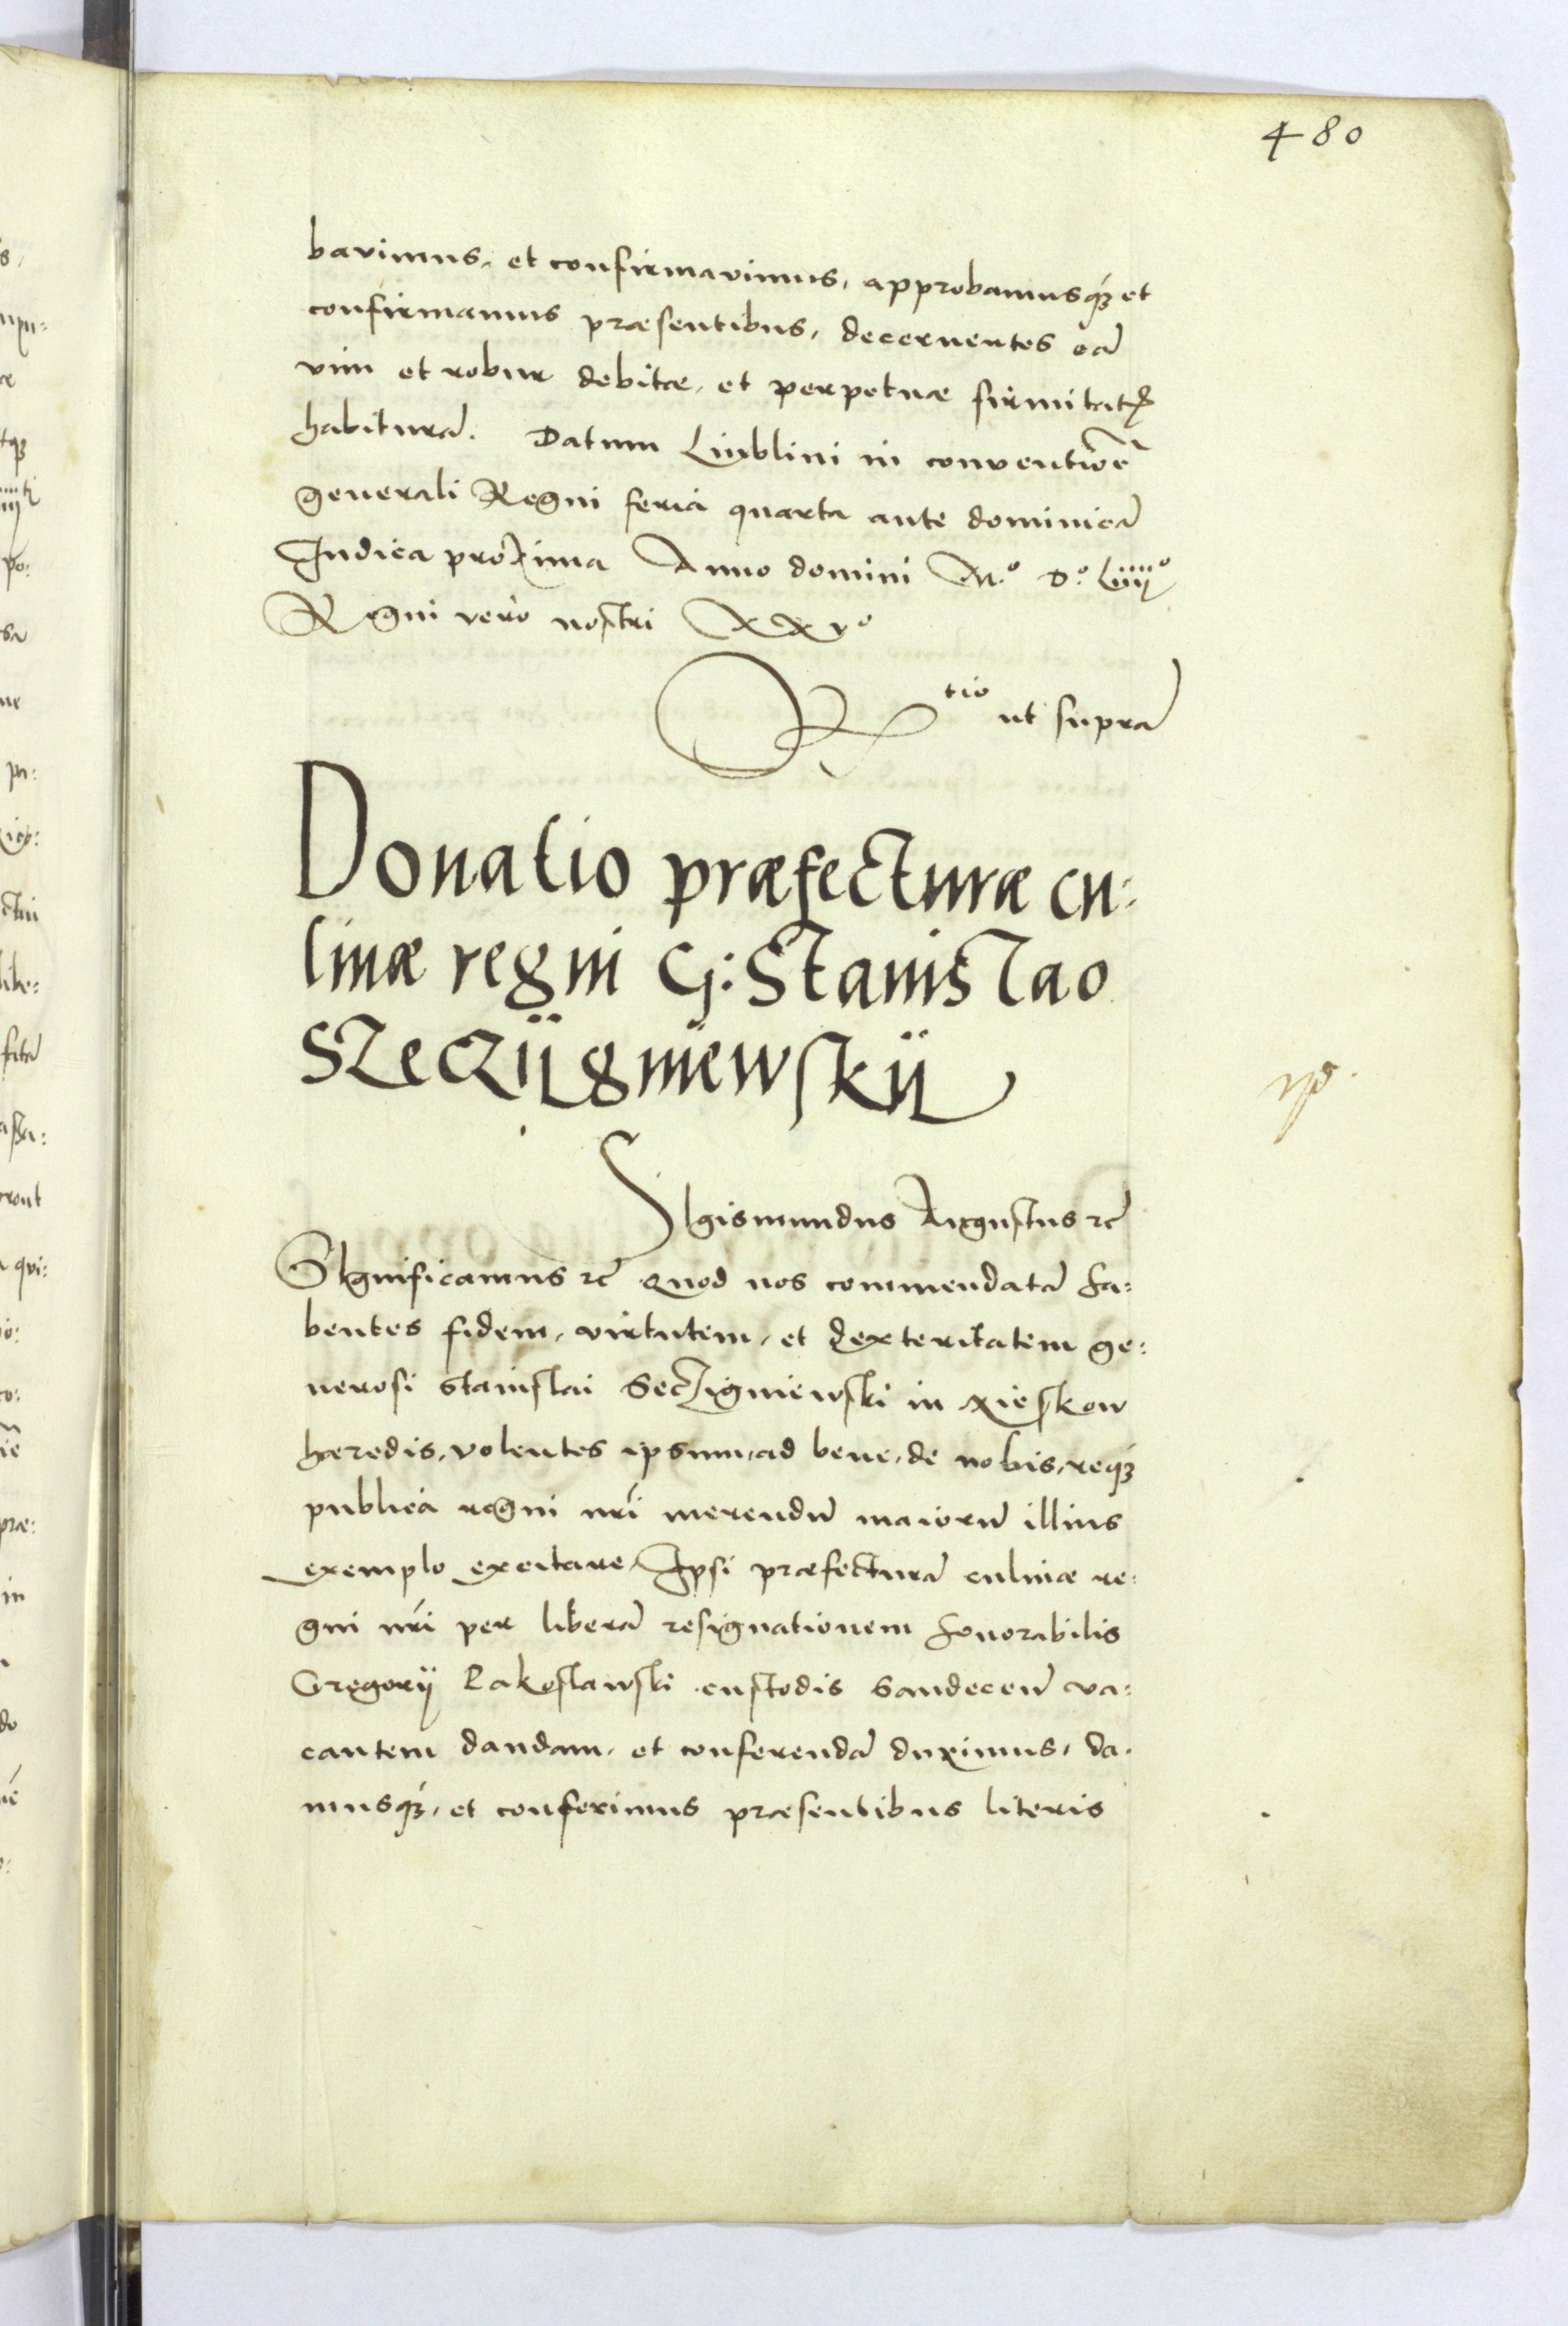 480
bavimus, et confirmavimus, approbamusq₃ et
confirmamus præsentibus, decernentes eā
vim et robur debitæ, et perpetuæ firmitatꝭ
habiturā. Datum Liublini in conventiōe
generali Regni feria quarta ante dominicā
Iudica proxima Anno domini M.º D.º Liiijº
Regni vero nostri XXVº
R^tio ut suprā
Donatio præfecturæ cu:
linæ regni G: Stanislao
Szeczÿgniewskÿ
SIgismundus Augustus ꝛc̄
SIgnificamus ꝛc̄ Quod nos commendatā ha:
bentes fidem, virtutem, et dexteritatem ge:
nerosi Stanislai Seczigniewski in Xieskow
hæredis, volentes ipsum, ad bene, de nobis, req₃
publica regni nr̄i merendū maiorū illius
exemplo excitare, Ipsi præfecturā culinæ re:
gni nr̄i per liberā resignationem honorabilis
Gregorÿ Rakoslawski custodis Sandeceñ va:
cantem dandam, et conferendā duximus, da:
musq₃, et conferimus præsentibus literis